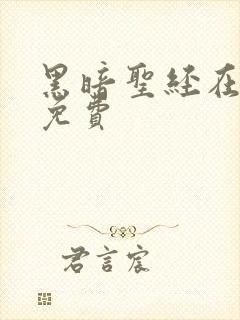 黑暗聖經在
免費
君言宸